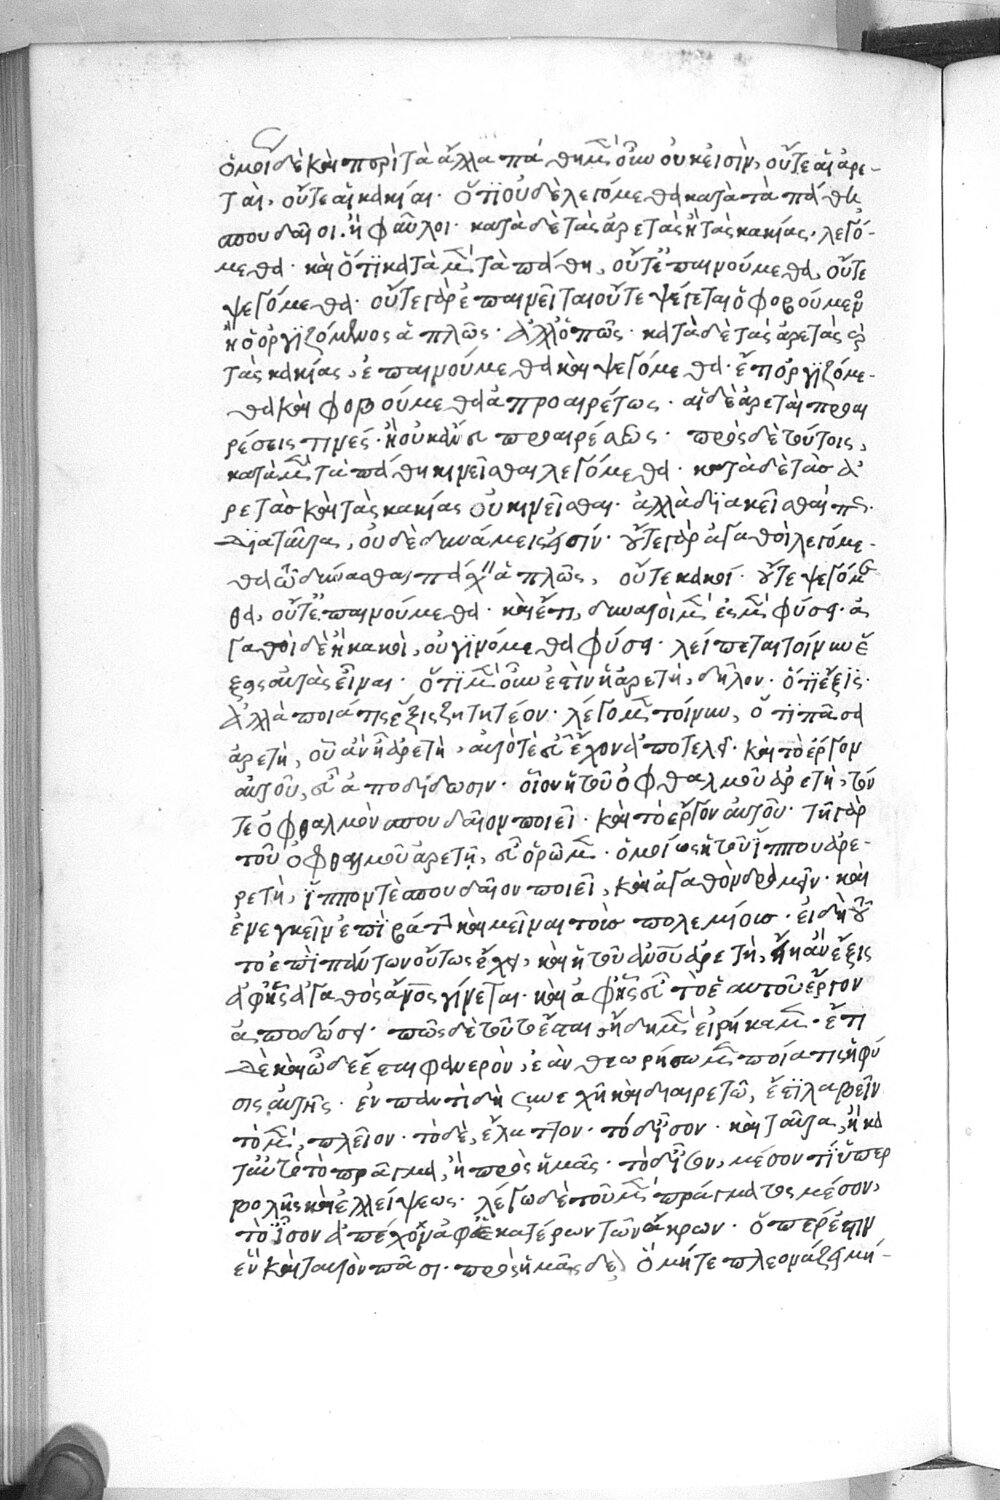 ὅμοι δὲ καὶ πρὶ τὰ ἄλλα· πάθη μὲν οὖν οὐκ εἰσὶν, οὔτε αἱ ἀρε-
ταὶ, οὔτε αἱ κακίαι· ὅτι οὐδὲ λεγόμεθα κατὰ τὰ πάθη
σπουδαῖοι ἢ φαῦλοι· κατὰ δὲ τὰς ἀρετὰς ἢ τὰς κακίας, λεγό-
μεθα· καὶ ὅτι κατὰ μὲν τὰ πάθη, οὔτ' ἐπαινούμεθα, οὔτε
ψεγόμεθα· οὔτε γὰρ ἐπαινεῖται οὔτε ψέγεται ὁ φοβούμενος
ἢ ὁ ὀργιζόμενος ἁπλῶς· ἀλλ' ὁ πῶς· κατὰ δὲ τὰς ἀρετὰς καὶ
τὰς κακίας, ἐπαινούμεθα καὶ ψεγόμεθα· ἔτι ὀργιζόμε-
θα καὶ φοβούμεθα ἀπροαιρέτως· αἱ δὲ ἀρεταὶ προαι
ρέσεις τινές· ἢ οὐκ ἄνευ προαιρέσεως· πρὸς δὲ τούτοις,
κατὰ μὲν τὰ πάθη κινεῖσθαι λεγόμεθα· κατὰ δὲ τὰς ἀ
ρετὰς καὶ τὰς κακίας οὐ κινεῖσθαι· ἀλλὰ διακεῖσθαί πως·
διὰ ταῦτα, οὐδὲ δυνάμεις εἰσίν· οὔτε γὰρ ἀγαθοὶ λεγόμε-
θα τῶ δύνασθαι πάσχειν ἁπλῶς, οὔτε κακοί· οὔτε ψεγόμε
θα, οὔτε ἐπαινούμεθα· καὶ ἔτι, δυνατοὶ μέν ἐσμεν φύσει· ἀ
γαθοὶ δὲ ἢ κακοὶ, οὐ γινόμεθα φύσει· λείπεται τοίνυν ἕ
ξεις αὐτὰς εἶναι· ὅτι μὲν οὖν ἐστὶν ἡ ἀρετὴ, δῆλον· ὅτι ἕξις·
ἀλλὰ ποιά τις ἕξις ζητητέον· λέγομεν τοίνυν, ὅτι πᾶσα
ἀρετὴ, οὗ ἂν ᾖ ἀρετὴ, αὐτό τε εὖ ἔχον ἀποτελεῖ· καὶ τὸ ἔργον
αὐτοῦ, εὖ ἀποδίδωσιν· οἷον ἡ τοῦ ὀφθαλμοῦ ἀρετὴ, τόν
τε ὀφθαλμὸν σπουδαῖον ποιεῖ· καὶ τὸ ἔργον αὐτοῦ· τῇ γὰρ
τοῦ ὀφθαλμοῦ ἀρετῇ, εὖ ὁρῶμεν· ὁμοίως ἡ τοῦ ἵππου ἀρε-
ρετὴ, ἵππον τὲ σπουδαῖον ποιεῖ, καὶ ἀγαθὸν δραμεῖν· καὶ
ἐνεγκεῖν ἐπιβάτην καὶ μεῖναι τοὺς πολεμίους· εἰ δὴ τοῦ
το ἐπὶ πάντων οὕτως ἔχει, καὶ ἡ τοῦ ἀνθρώπου ἀρετὴ, εἴη ἂν ἕξις
ἀφ' ἧς ἀγαθὸς ἄνθρωπος γίνεται· καὶ ἀφ' ἧς εὖ τὸ ἑαυτοῦ ἔργον
ἀποδώσει· πῶς δὲ τοῦτ' ἔσται, ἤδη μὲν εἰρήκαμεν· ἔτι
δὲ καὶ ὧδε ἔσται φανερὸν, ἐὰν θεωρήσωμεν ποία τις ἡ φύ
σις αὐτῆς· ἐν παντὶ δὴ συνεχῆ καὶ διαιρετῶ, ἔστι λαβεῖν
τὸ μὲν, πλεῖον· τὸ δὲ, ἔλαττον· τὸ δ' ἴσον· καὶ ταῦτα, ἢ κα
τ' αὐτὸ τὸ πρᾶγμα, ἢ πρὸς ἡμᾶς· τὸ δ' ἴσον, μέσον τι ὑπερ
βολῆς καὶ ἐλλείψεως· λέγω δὲ τοῦ μὲν πράγματος μέσον,
τὸ ἴσον ἀπέχον ἀφ' ἑκατέρων τῶν ἄκρων· ὅπερ ἐστὶν
ἓν καὶ ταυτὸν πᾶσι· πρὸς ἡμᾶς δὲ, ὃ μήτε πλεονάζει μή-